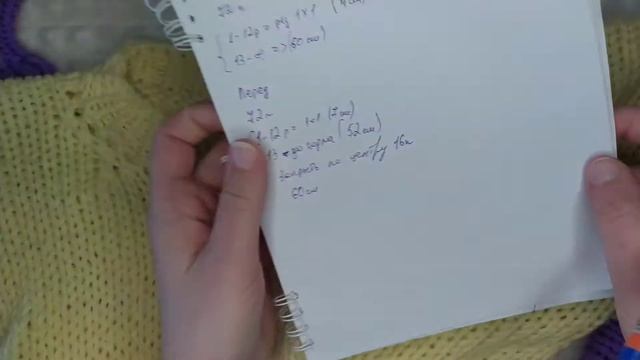 72п
1-12р = рез 1х1 (7см)
13- => (60см)
Перед
72п
1-12р = 1х1 (7см)
13 - до горла (52см)
Закрыть по центру 16п
60см